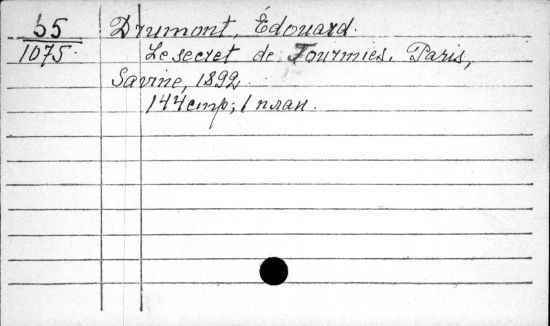 55 Drumont, Édouard.
1075. Le secret de Fourmies. Paris,
Savine, 1892.
144 стр; 1 план.